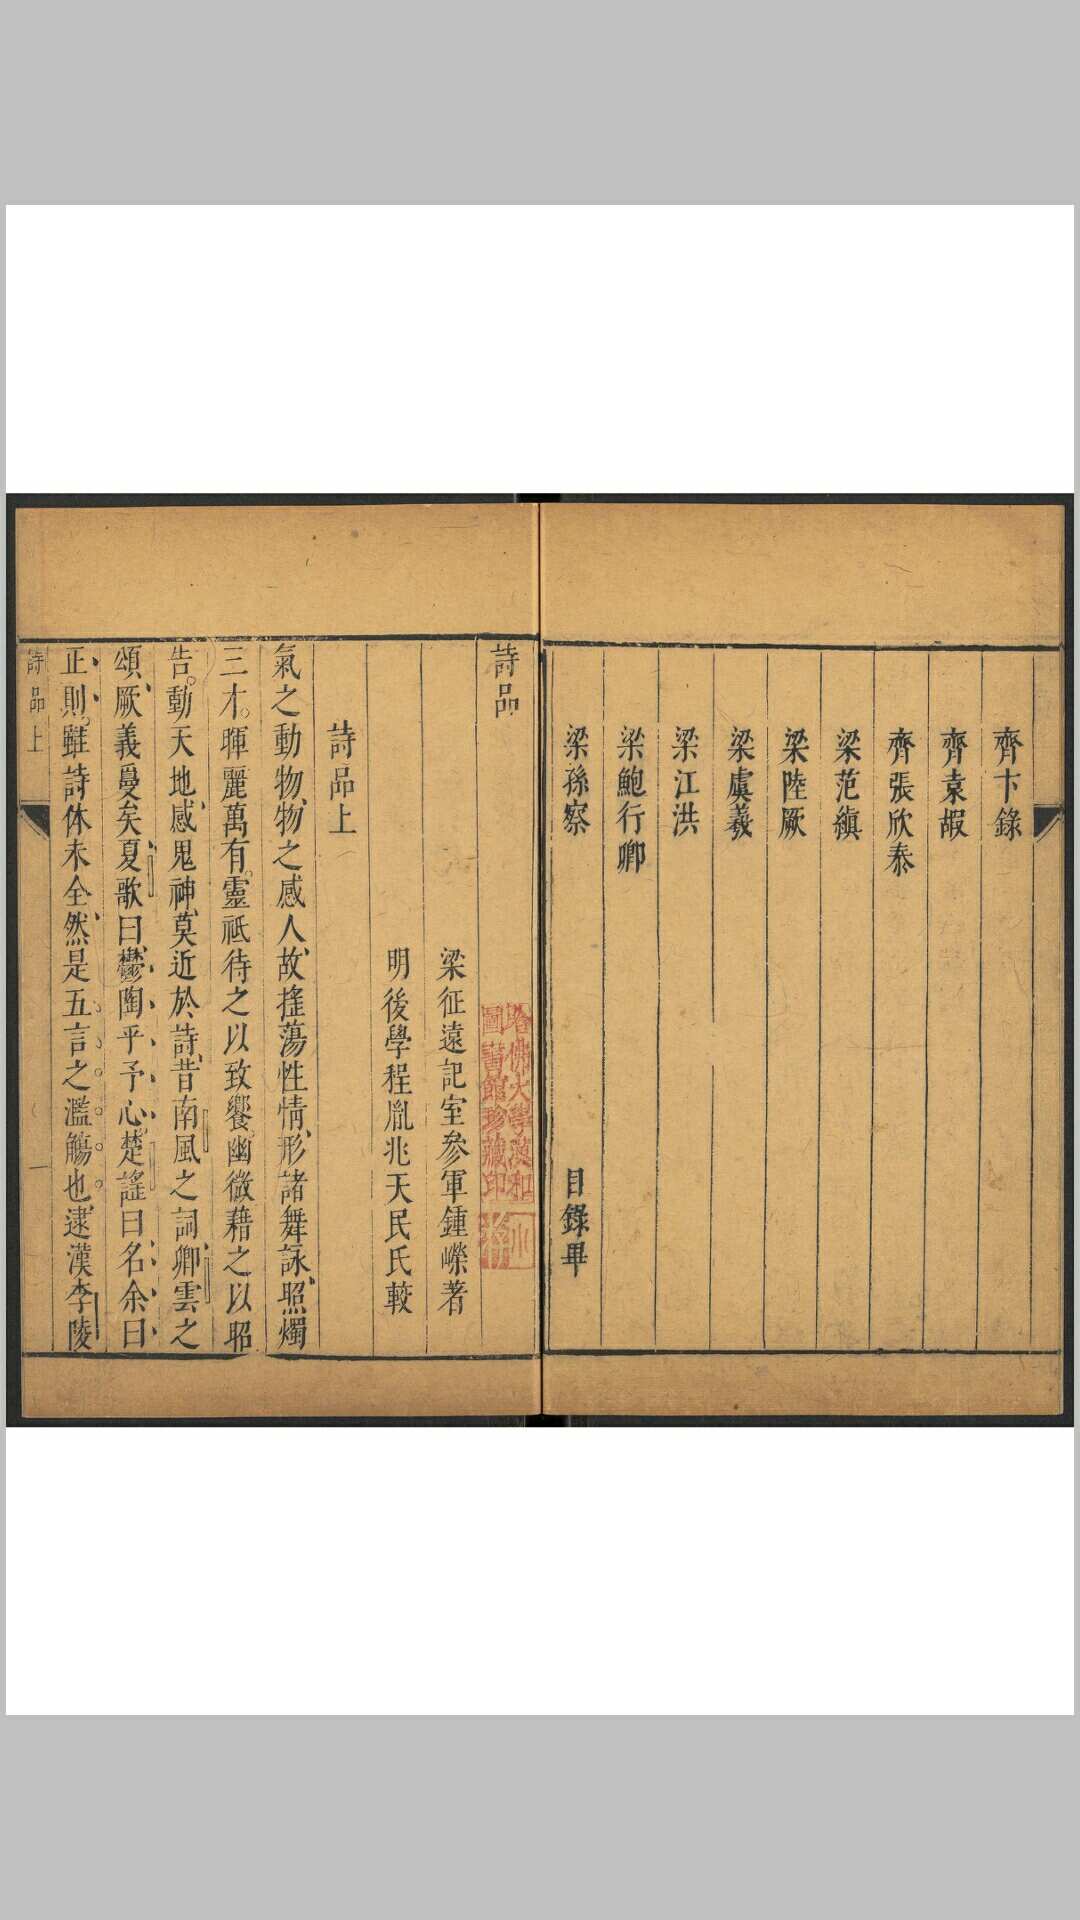 齊卞錄
齊袁嘏
齊張欣泰
梁范縝
梁陸厥
梁虞羲
梁江洪
梁鮑行卿
梁孫察
目錄畢
詩品
哈佛大學漢和
圖書館珍藏印
梁征遠記室參軍鍾嶸著
明後學程胤兆天民氏較
詩品上
氣之動物、物之感人、故搖蕩性情、形諸舞詠、照燭
三才。暉麗萬有。靈祇待之以致饗、幽微藉之以昭
告。動天地、感鬼神、莫近於詩、昔南風之詞、卿雲之
頌、厥義夐矣、夏歌曰、鬱陶乎予心、楚謠曰、名余曰
正則。雖詩体未全、然是五言之濫觴也、逮漢李陵
詩品上
一